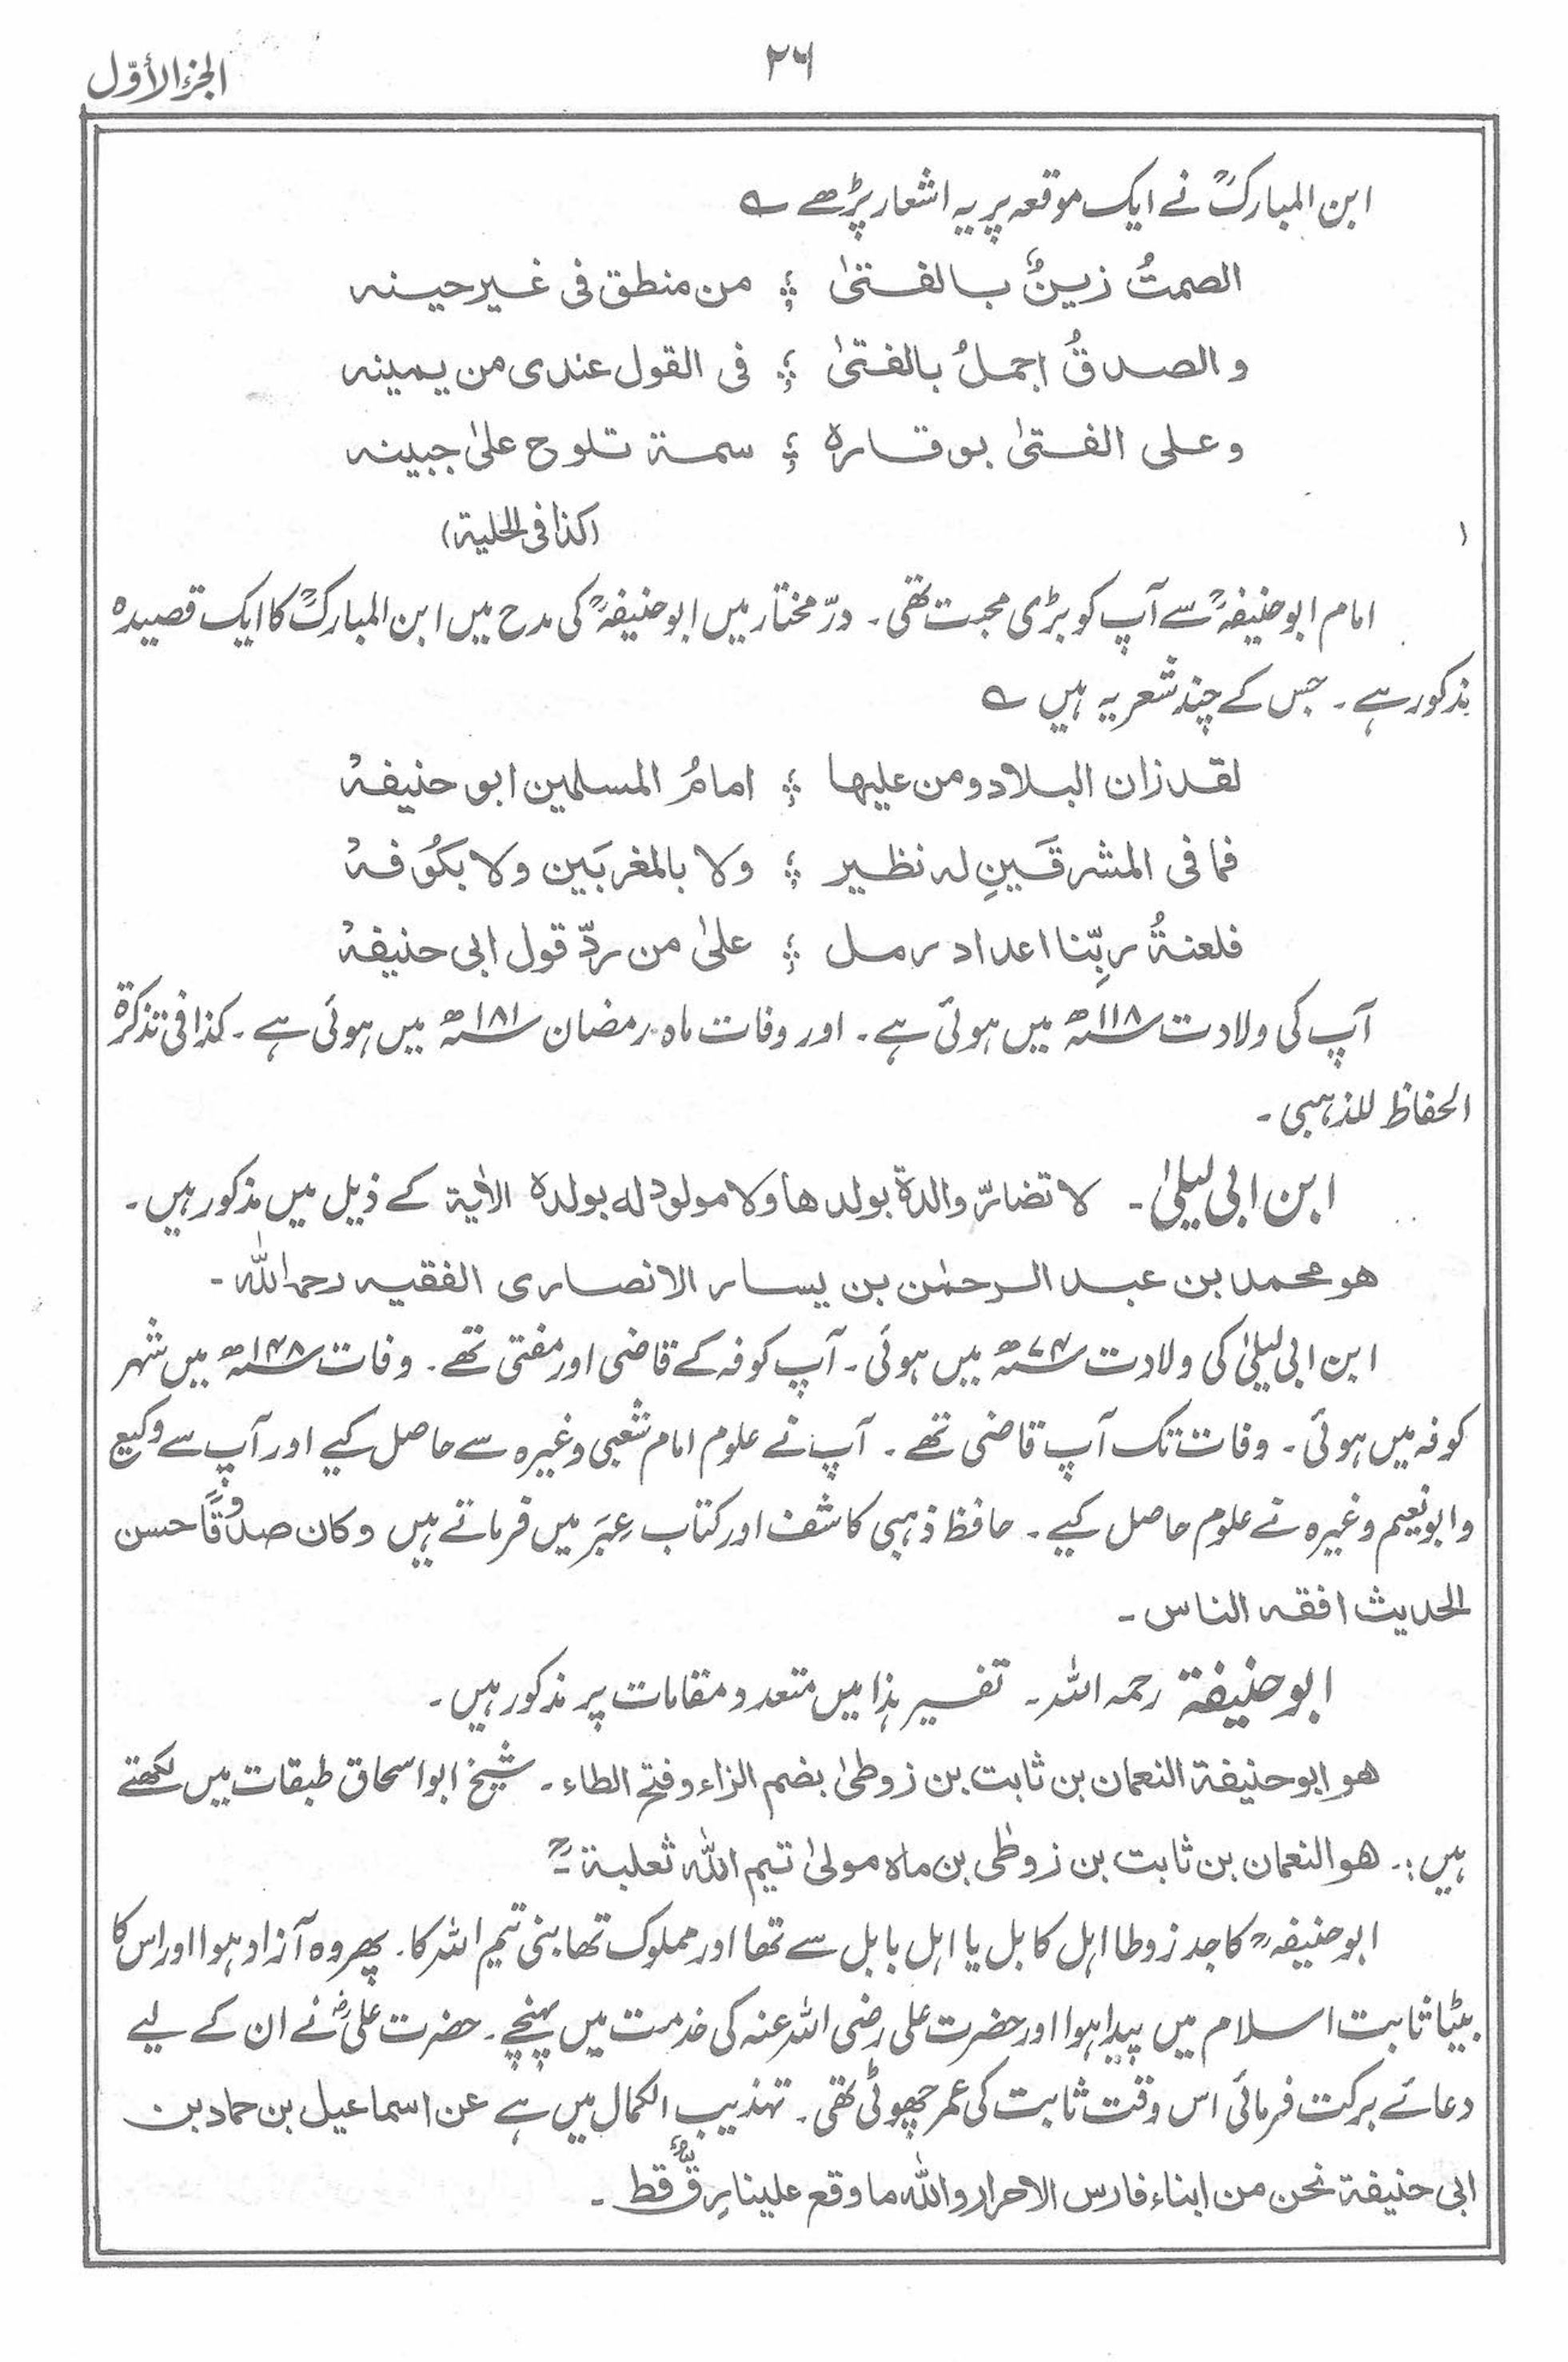 ٢٦
الجزء الأوّل
ابن المبارکؒ نے ایک موقعہ پر یہ اشعار پڑھے ؎
الصمتُ زینٌ بالفتیٰ ؛ من منطق فی غیر حینہ
والصدقُ اجملُ بالفتیٰ ؛ فی القول عندی من یمینہ
وعلی الفتیٰ بوقارہ ؛ سمۃ تلوح علیٰ جبینہ
(کذا فی الحلیۃ)
امام ابوحنیفہؒ سے آپ کو بڑی محبت تھی۔ درّ مختار میں ابوحنیفہؒ کی مدح میں ابن المبارکؒ کا ایک قصیدہ
مذکور ہے۔ جس کے چند شعر یہ ہیں ؎
لقد زان البلاد ومن علیہا ؛ امامُ المسلمین ابو حنیفہْ
فما فی المشرقَینِ لہ نظیر ؛ ولا بالمغربَین ولا بکُوفہْ
فلعنۃُ ربِّنا اعداد رمل ؛ علیٰ من ردّ قول ابی حنیفہْ
آپ کی ولادت ۱۱۸ھ میں ہوئی ہے۔ اور وفات ماہ رمضان ۱۸۱ھ میں ہوئی ہے۔ کذا فی تذکرۃ
الحفاظ للذہبی۔
ابن ابی لیلیٰ۔ لا تضارّ والدۃ بولدھا ولا مولود لہ بولدہ الاٰیۃ کے ذیل میں مذکور ہیں۔
ھو محمد بن عبد الرحمٰن بن یسار الانصاری الفقیہ رحمہ اللہ۔
ابن ابی لیلیٰ کی ولادت ۷۴ھ میں ہوئی۔ آپ کوفہ کے قاضی اور مفتی تھے۔ وفات ۱۴۸ھ میں شہر
کوفہ میں ہوئی۔ وفات تک آپ قاضی تھے۔ آپ نے علوم امام شعبی وغیرہ سے حاصل کیے اور آپ سے وکیع
وابونعیم وغیرہ نے علوم حاصل کیے۔ حافظ ذہبی کاشف اور کتاب عِبَر میں فرماتے ہیں وکان صدُوقًا حسن
الحدیث افقہ الناس۔
ابوحنیفۃ رحمہ اللہ۔ تفسیر ہٰذا میں متعدد مقامات پر مذکور ہیں۔
ھو ابوحنیفۃ النعمان بن ثابت بن زوطیٰ بضم الزاء وفتح الطاء۔ شیخ ابواسحاق طبقات میں لکھتے
ہیں:۔ ھو النعمان بن ثابت بن زوطٰی بن ماہ مولیٰ تیم اللہ ثعلبۃ۔
ابوحنیفہؒ کا جد زوطا اہل کابل یا اہل بابل سے تھا اور مملوک تھا بنی تیم اللہ کا۔ پھر وہ آزاد ہوا اور اس کا
بیٹا ثابت اسلام میں پیدا ہوا اور حضرت علی رضی اللہ عنہ کی خدمت میں پہنچے۔ حضرت علیؓ نے ان کے لیے
دعائے برکت فرمائی اس وقت ثابت کی عمر چھوٹی تھی۔ تہذیب الکمال میں ہے عن اسماعیل بن حماد بن
ابی حنیفۃ نحن من ابناء فارس الاحرار واللہ ما وقع علینا رِقٌّ قط۔